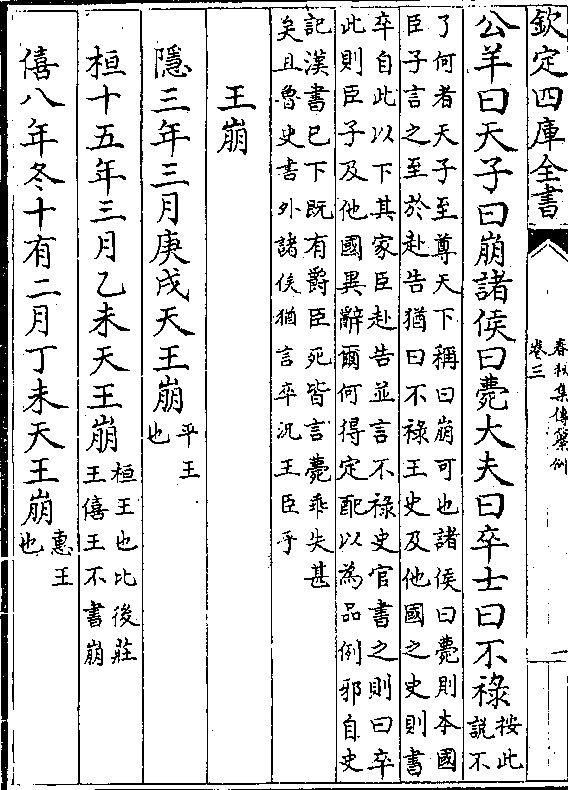 欽定四庫全書
春秋集傳纂例
卷三
一
公羊曰天子曰崩諸侯曰薨大夫曰卒士曰不祿按此
説不
了何者天子至尊天下稱曰崩可也諸侯曰薨則本國
臣子言之至於赴告猶曰不祿王史及他國之史則書
卒自此以下其家臣赴告並言不祿史官書之則曰卒
此則臣子及他國異辭爾何得定配以為品例邪自史
記漢書已下既有爵臣死皆言薨乖失甚
矣且魯史書外諸侯猶言卒況王臣乎
王崩
隱三年三月庚戌天王崩平王
也
桓十五年三月乙未天王崩桓王也比後莊
王僖王不書崩
僖八年冬十有二月丁未天王崩惠王
也